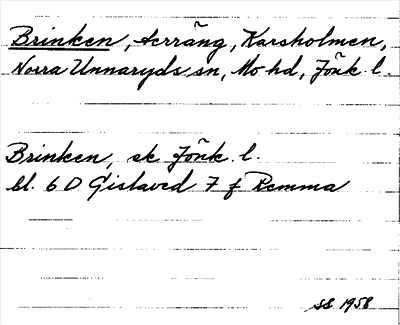 Brinken, terräng, Karsholmen,
Norra Unnaryds sn, Mo hd, Jönk. l.
Brinken, ek Jönk. l.
bl. 6 D Gislaved 7 f Remma
SS 1958